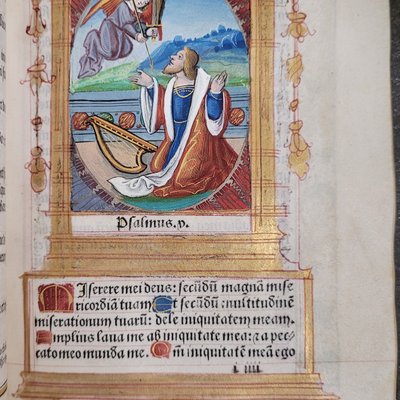 Psalmus. p.
MIserere mei deus: secūdū magnā mise
ricordiā tuam Et secūdū multitudinē
miserationum tuarū: dele iniquitatem meam.
Amplius laua me ab iniquitate mea: ⁊ a pec
cato meo munda me. Qm̄ iniquitatē meā ego
l iiii